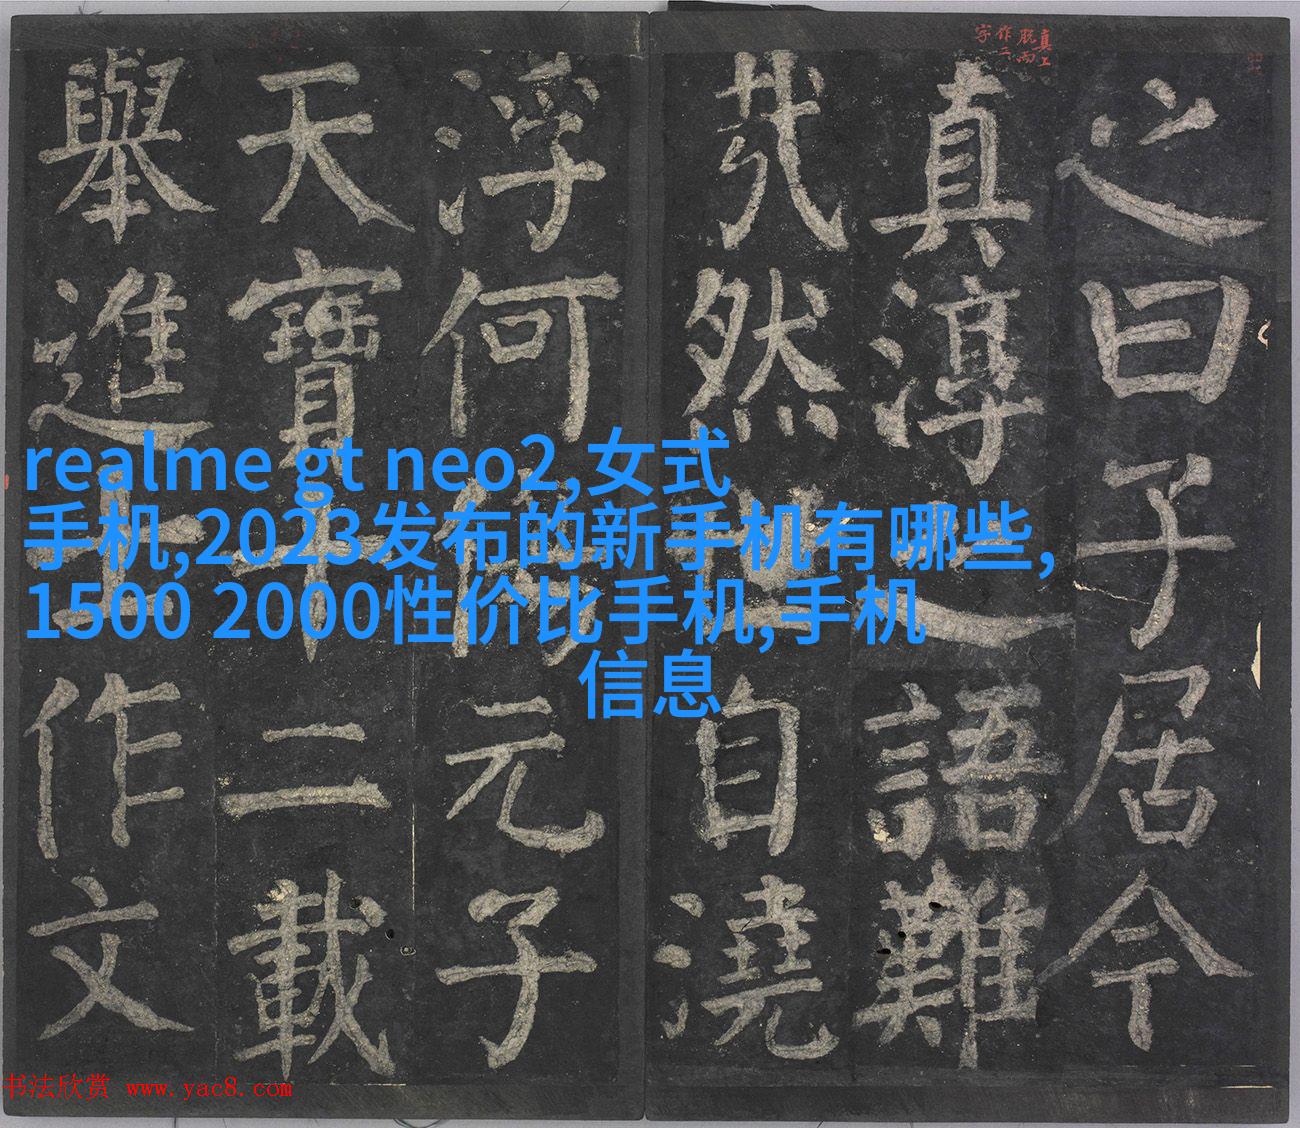 之曰子居今
真淳之語難
哉然世自澆
浮何傷元子
天寶十二載
舉進士作文
真上
脱而
作二
字
realme gt neo2,女式
手机,2023发布的新手机有哪些,
1500 2000性价比手机,手机
信息
书法欣赏 www.yac8.com